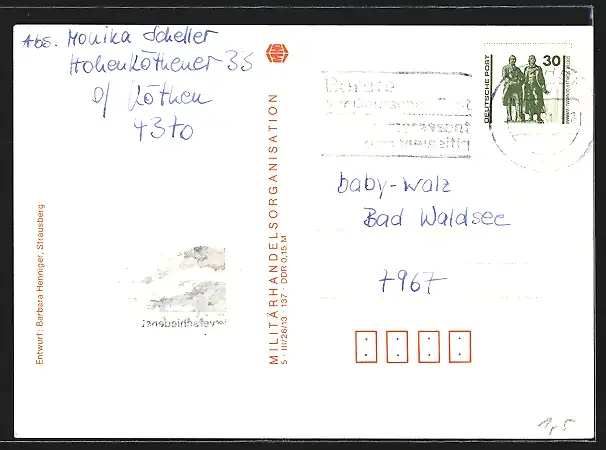 Abs. Monika Scheller
Hohenköthener 35
Köthen
4370
MHO
DEUTSCHE POST
30
baby-walz
Bad Waldsee
7967
Entwurf: Barbara Henniger, Strausberg
MILITÄRHANDELSORGANISATION
5 · III/26/13 · 137 · DDR 0,15 M